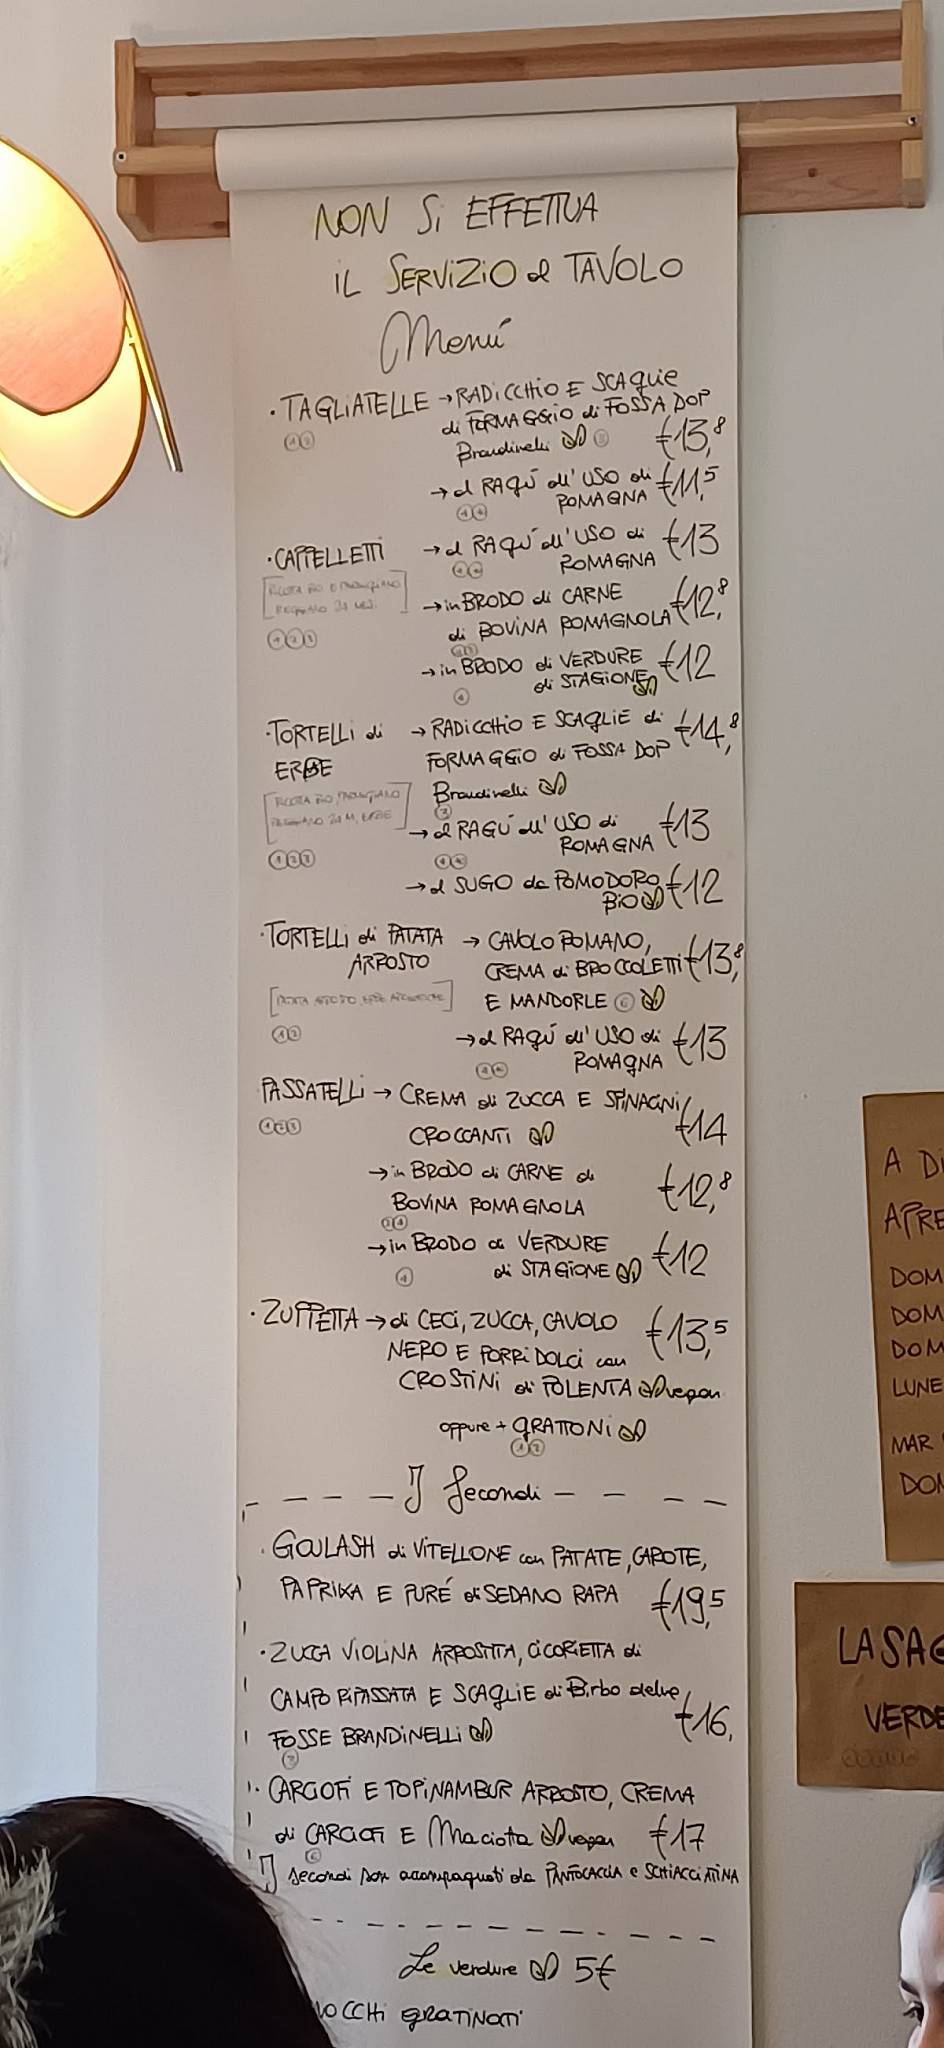 NON Si EFFETTUA
iL SERViZiO al TAVOLO
Menú
· TAGLiATELLE → RADiCCHiO E SCAGLiE
di FORMAGGiO di FOSSA DOP
Brandinelli ③ €13,8
①②
→ al RAGÚ all'USO di
ROMAGNA €11,5
·CAPPELLETTi → al RAGÚ all'USO di
ROMAGNA €13
[RICOTTA BIO E PARMIGIANO
REGGIANO 24 MESI]
①②③
→ in BRODO di CARNE
di BOViNA ROMAGNOLA €12,8
→ in BRODO di VERDURE
di STAGiONE €12
④
·TORTELLi di
ERBE
→ RADiCCHiO E SCAGLiE di
FORMAGGiO di FOSSA DOP
Brandinelli €14,8
③
[RICOTTA BIO, PARMIGIANO
REGGIANO 24 M, ERBE]
①②③
→ al RAGÚ all'USO di
ROMAGNA €13
→ al SUGO da POMODORO
BiO €12
·TORTELLi di PATATA
ARROSTO
→ CAVOLO ROMANO,
CREMA di BROCCOLETTi
E MANDORLE €13,8
[PATATA ARROSTO, ERBE AROMATICHE]
①②
→ al RAGÚ all'USO di
ROMAGNA €13
PASSATELLi → CREMA di ZUCCA E SPiNACiNi
CROCCANTi €14
①②③
→ in BRODO di CARNE di
BOViNA ROMAGNOLA €12,8
→ in BRODO di VERDURE
di STAGiONE €12
④
· ZUPPETTA → di CECi, ZUCCA, CAVOLO
NERO E PORRi DOLCi con
CROSTiNi di POLENTA vegan €13,5
oppure + GRATTONi
①②
I Secondi
· GOULASH di ViTELLONE con PATATE, CAROTE,
PAPRiKA E PURÉ di SEDANO RAPA €19,5
· ZUCCA ViOLiNA ARROSTiTA, CiCORiETTA di
CAMPO RiPASSATA E SCAGLiE di Birbo delle
FOSSE BRANDiNELLi €16,
· CARCiOFi E TOPiNAMBUR ARROSTO, CREMA
di CARCiOFi E Maciotta vegan €17
I secondi son accompagnati da PANFOCACCIA e SCHiACCiATiNA
Le verdure 5€
OCCHi GRATiNATi
A Di
APRE
DOM
DOM
DOM
LUNE
MAR
DOM
LASAG
VERDE